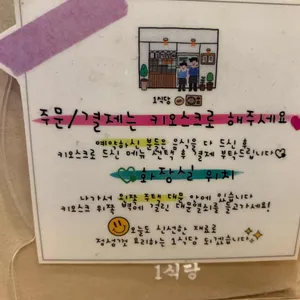 1식당
주문/결제는 키오스크로 해주세요
예약하신 분들은 음식을 다 드신 후
키오스크로 드신 메뉴 선택 후 결제 부탁드립니다♡
♡화장실 위치
나가서 왼쪽 주택 대문 안에 있습니다
키오스크 위쪽 벽에 걸린 대문열쇠를 들고가세요!
오늘도 신선한 재료로
정성껏 요리하는 1식당 되겠습니다
1식당